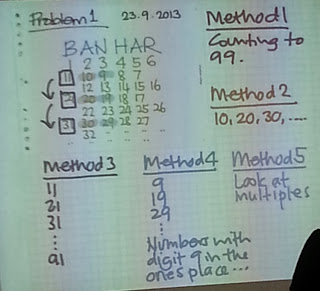 Problem 1 23.9.2013
BAN HAR
1 2 3 4 5 6
11 10 9 8 7
12 13 14 15 16
21 20 19 18 17
22 23 24 25 26
31 30 29 28 27
32 .. .. .. ..
Method 1
Counting to
99.
Method 2
10, 20, 30, ....
Method 3
11
21
31
:
91
Method 4
9
19
29
:
Numbers with
digit 9 in the
ones place...
Method 5
Look at
multiples